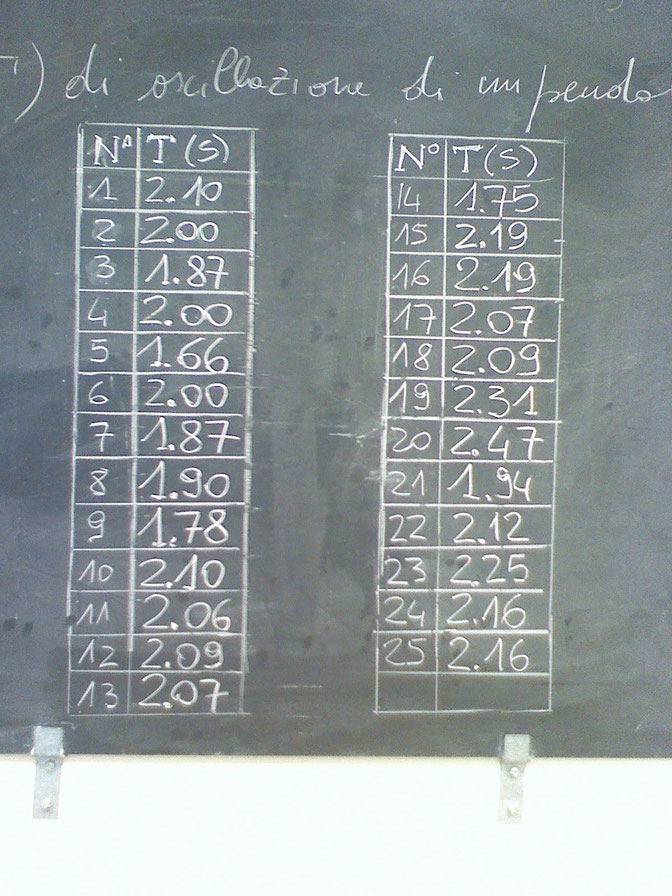 ) di oscillazione di un pendol
N° T (S)
1 2.10
2 2.00
3 1.87
4 2.00
5 1.66
6 2.00
7 1.87
8 1.90
9 1.78
10 2.10
11 2.06
12 2.09
13 2.07
N° T (S)
14 1.75
15 2.19
16 2.19
17 2.07
18 2.09
19 2.31
20 2.47
21 1.94
22 2.12
23 2.25
24 2.16
25 2.16